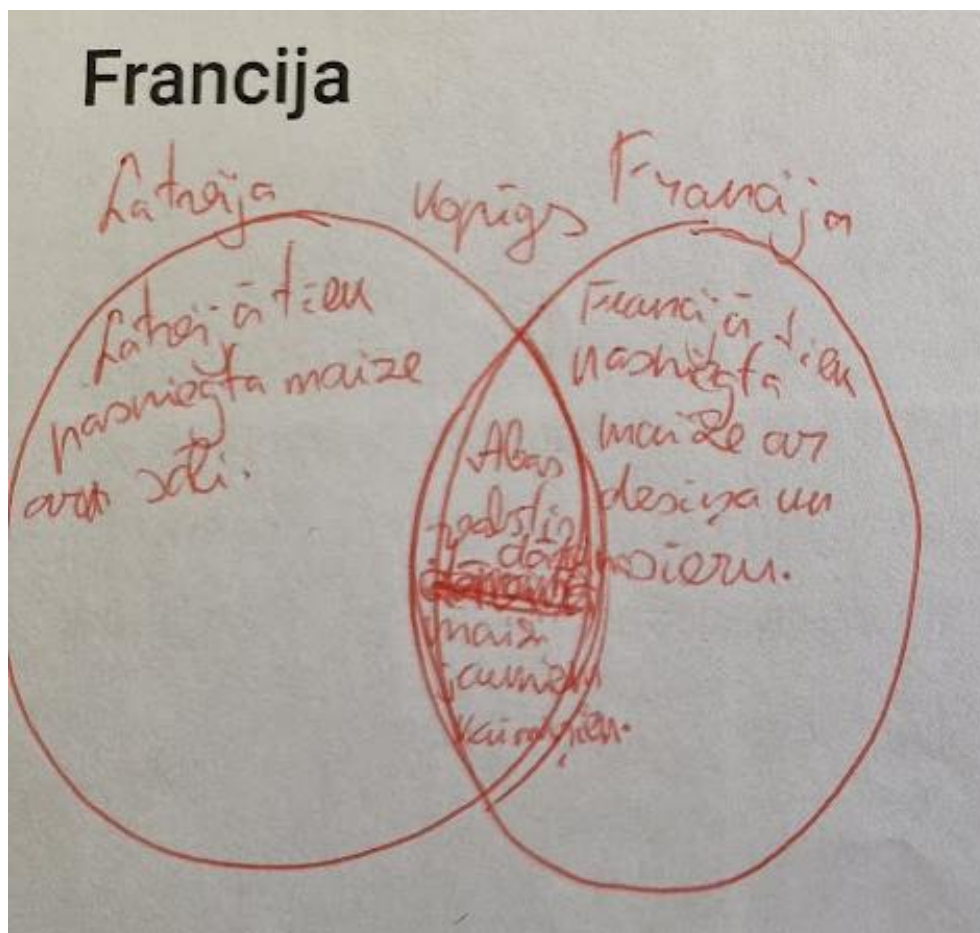 Francija
Latvija
Kopīgs
Francija
Latvijā tiek
pasniegta maize
ar sāli.
Abas
valstis
dod
maizi
jauniem
kaimiņiem.
Francijā tiek
pasniegta
maize ar
desiņa un
sieru.